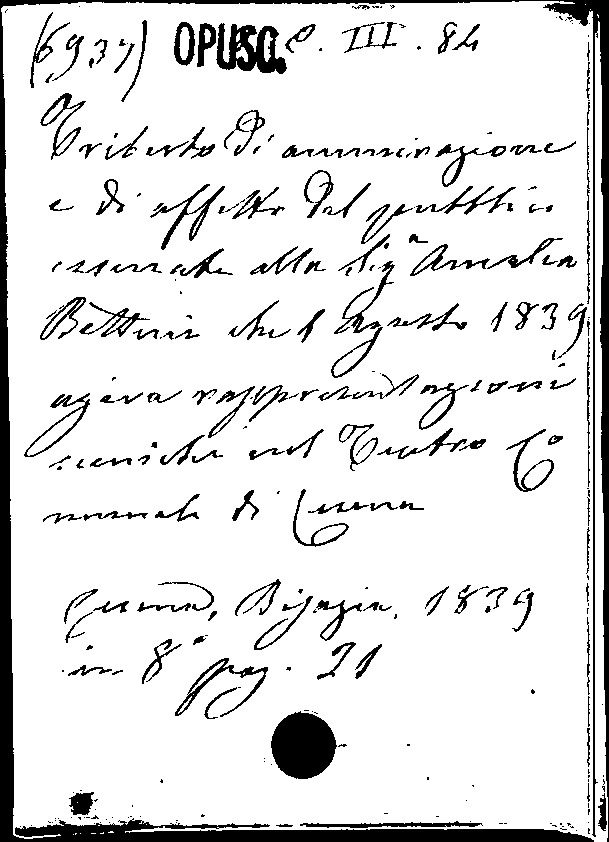 (6937) OPUSC. C. III. 84
Tributo di ammirazione
e di affetto del pubblico
cesenate alla Sigª Amalia
Bettini che l'Agosto 1839
agiva rappresentazioni
sceniche nel Teatro Co
munale di Cesena
Cesena, Bisazia, 1839
in 8° pag. 21